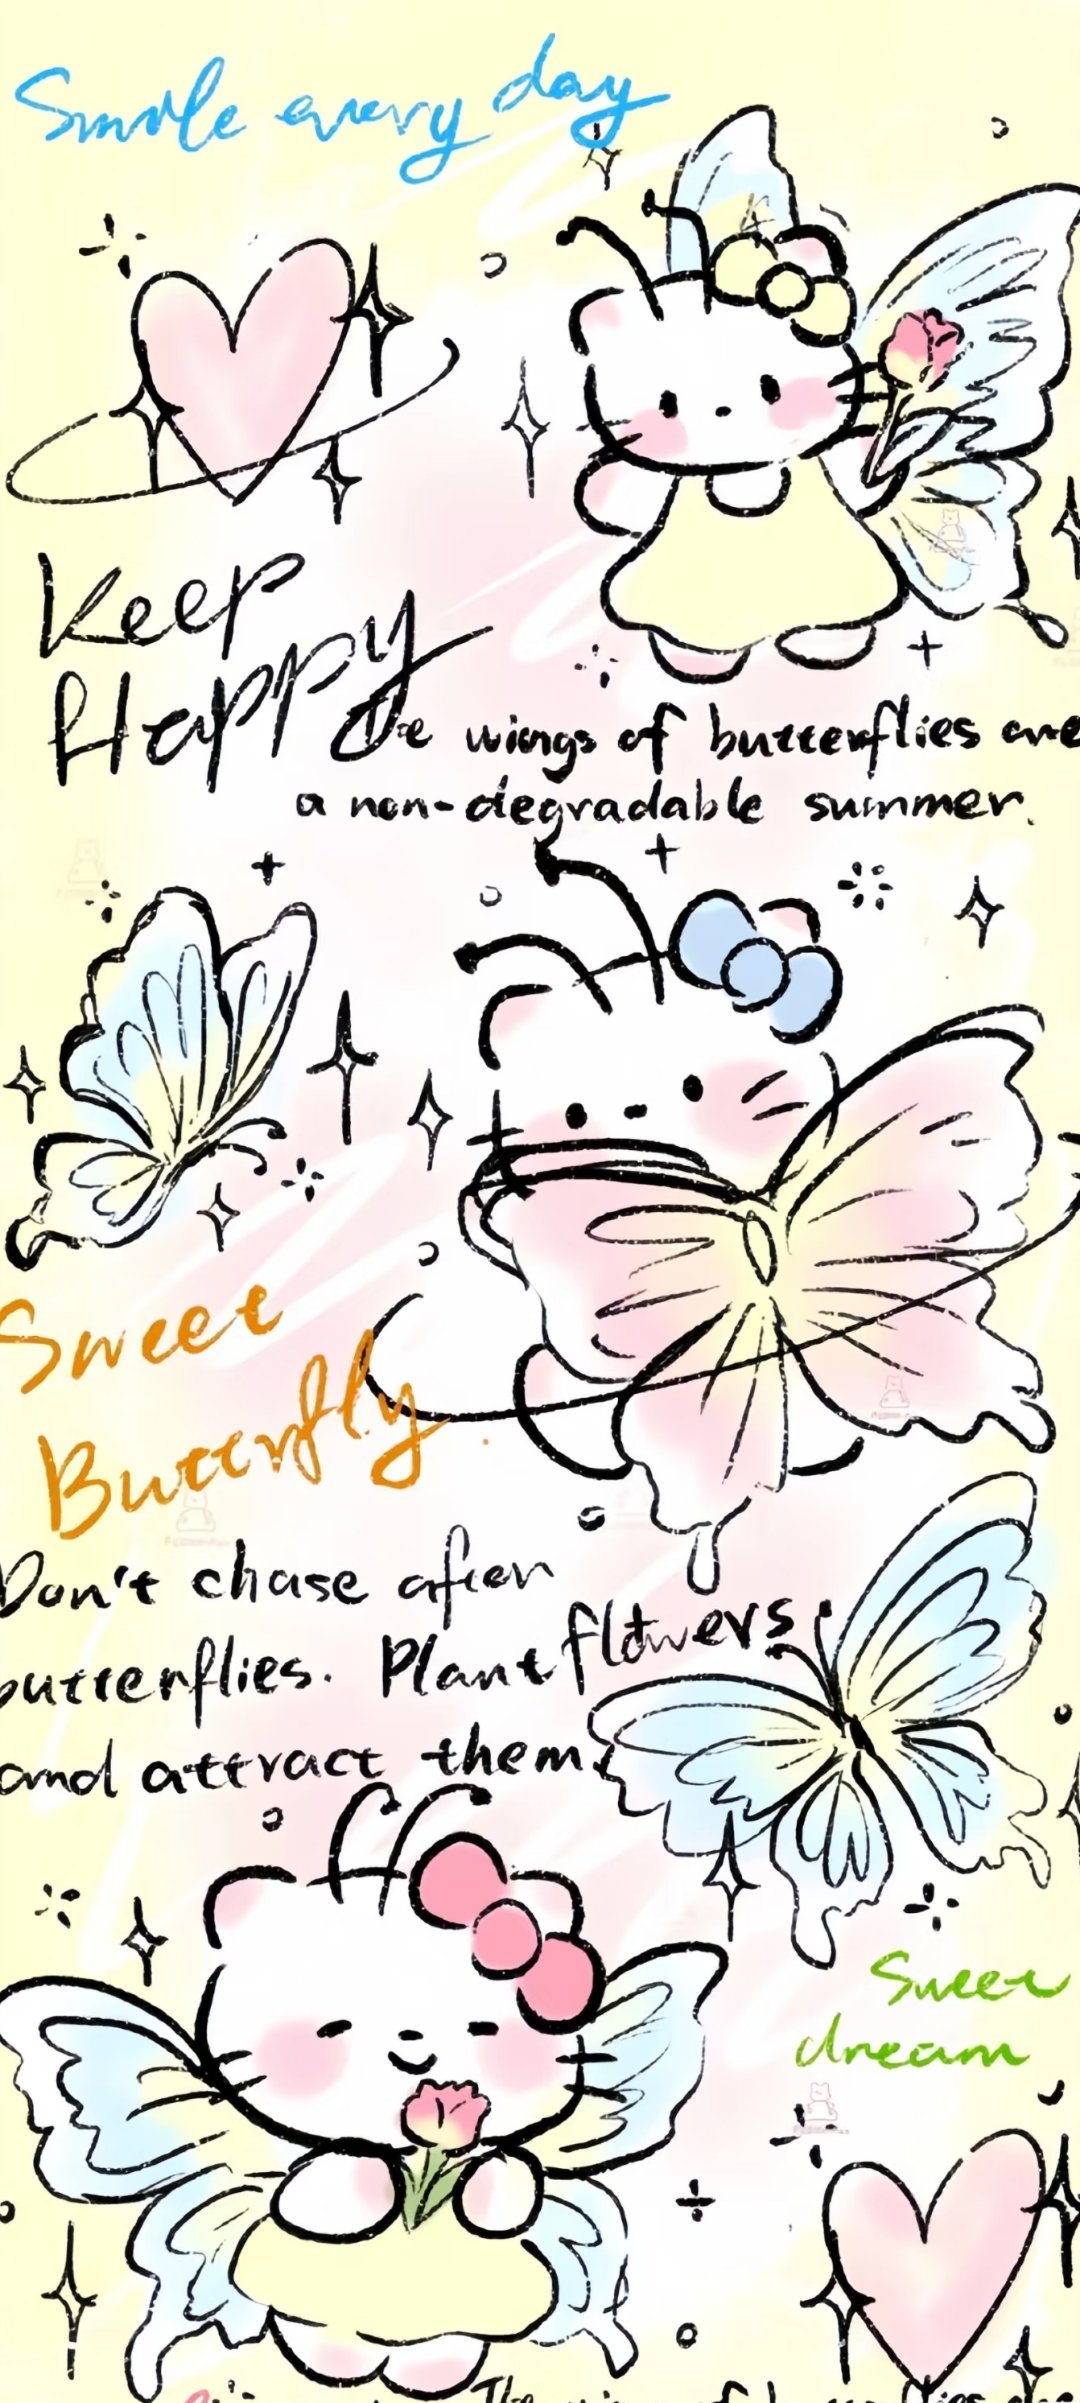 Smile every day
Keep
Happy
The wings of butterflies are
a non-degradable summer.
Sweet
Butterfly
Don't chase after
butterflies. Plant flowers
and attract them.
Sweet
dream